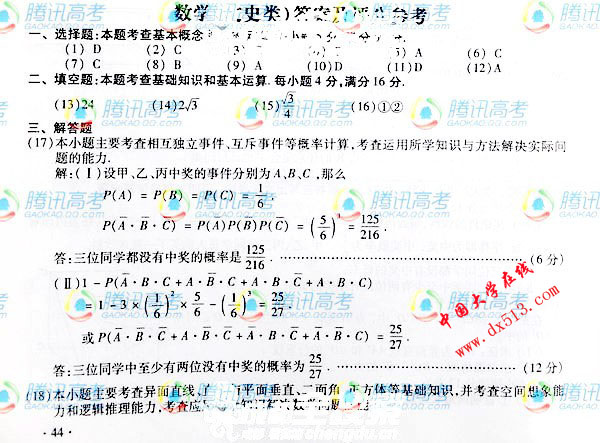 数学 (史类)答案及评分参考
一、选择题:本题考查基本概念
(1) D (2) C (3) B (5) A (6) C
(7) C (8) B (10) A (11) D (12) A
二、填空题:本题考查基础知识和基本运算. 每小题 4 分, 满分 16 分.
(13) 24 (14) 2√3 (15) √3/4 (16) ①②
三、解答题
(17) 本小题主要考查相互独立事件、互斥事件等概率计算, 考查运用所学知识与方法解决实际问
题的能力.
解: (Ⅰ) 设甲、乙、丙中奖的事件分别为 A、B、C, 那么
P(A) = P(B) = P(C) = 1/6,
P(A̅·B̅·C̅) = P(A̅)P(B̅)P(C̅) = (5/6)³ = 125/216.
答: 三位同学都没有中奖的概率是 125/216. (6 分)
(Ⅱ) 1 - P(A̅·B·C + A·B̅·C + A·B·C̅ + A·B·C)
= 1 - 3 × (1/6)² × 5/6 - (1/6)³ = 25/27.
或 P(A̅·B̅·C + A̅·B·C̅ + A·B̅·C̅ + A̅·B̅·C̅) = 25/27.
答: 三位同学中至少有两位没有中奖的概率为 25/27. (12 分)
(18) 本小题主要考查异面直线、平面垂直、二面角、正方体等基础知识, 并考查空间想象能
力和逻辑推理能力, 考查应
· 44 ·
腾讯高考
GAOKAO.QQ.COM
中国大学在线
www.dx513.com